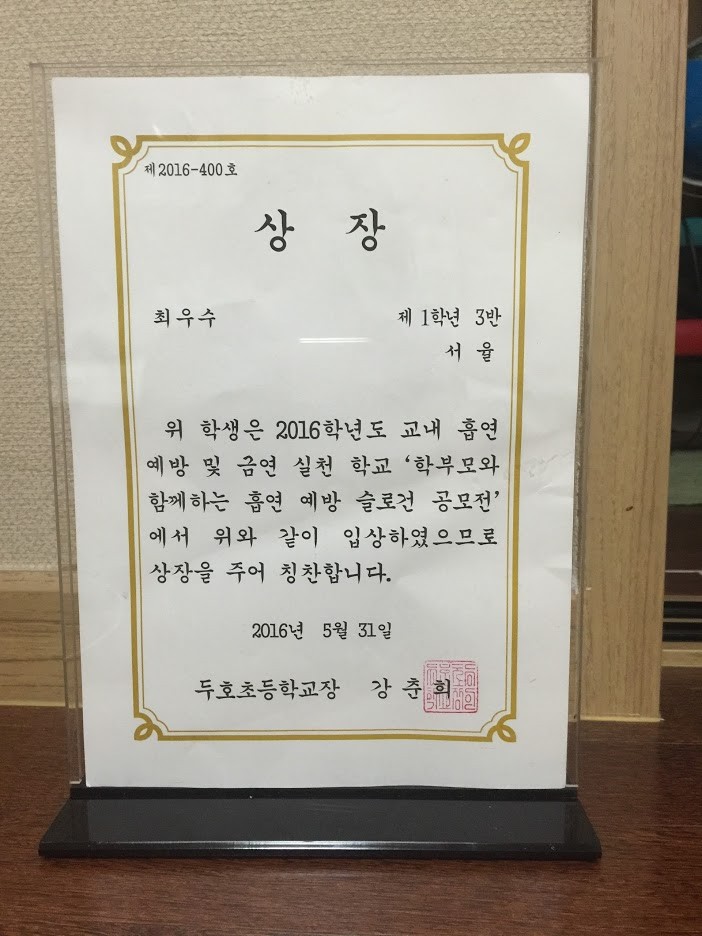 제2016-400호
상 장
최우수
제 1학년 3반
서 율
위 학생은 2016학년도 교내 흡연
예방 및 금연 실천 학교 '학부모와
함께하는 흡연 예방 슬로건 공모전'
에서 위와 같이 입상하였으므로
상장을 주어 칭찬합니다.
2016년 5월 31일
두호초등학교장 강 춘 희